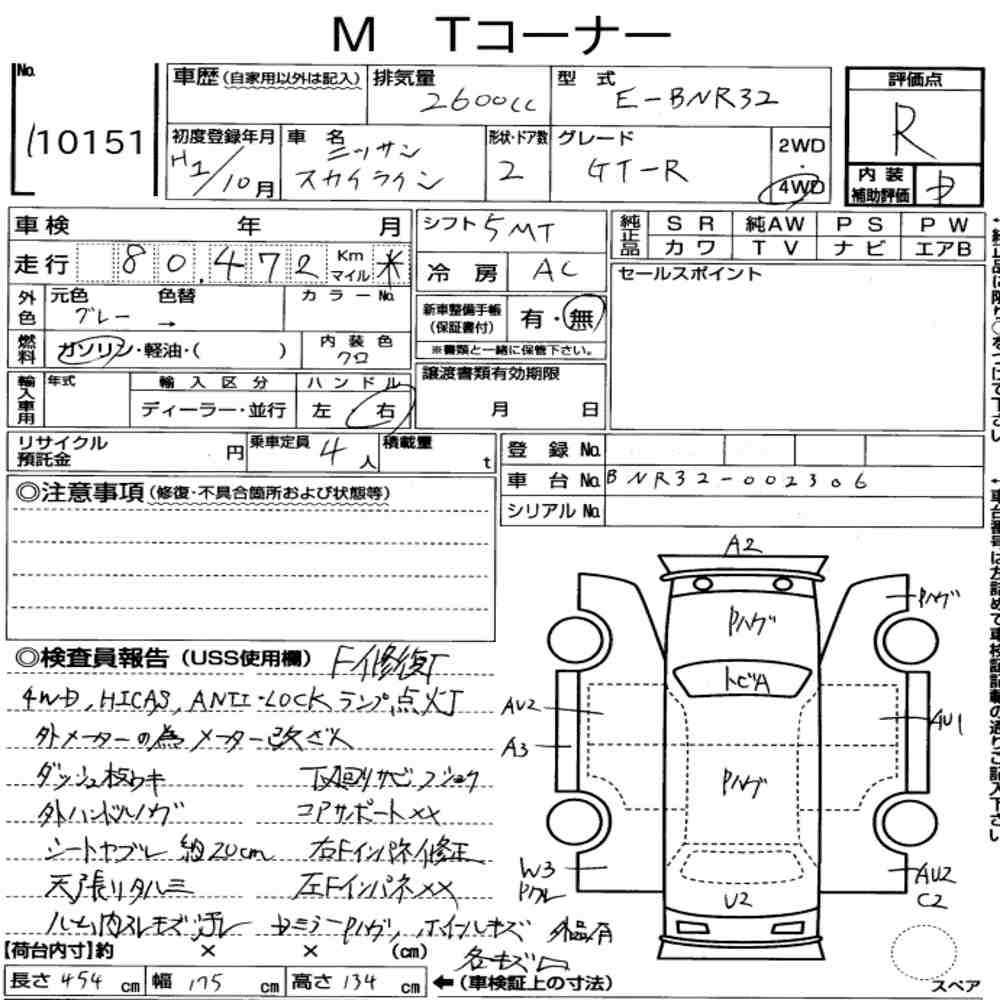 M Tコーナー
No.
10151
車歴 (自家用以外は記入)
排気量
2600cc
型 式
E-BNR32
評価点
R
初度登録年月
H2/10月
車 名
ニッサン
スカイライン
形状・ドア数
2
グレード
GT-R
2WD
・
4WD
内 装
補助評価
車 検 年 月
シフト 5MT
純正品
S R 純AW P S P W
カ ワ T V ナ ビ エアB
走 行 80,472 Km マイル *
冷 房 AC
セールスポイント
外色
元色 色替 カ ラ ー No.
グレー →
新車整備手帳
(保証書付)
有・無
※書類と一緒に保管下さい。
燃料
ガソリン・軽油・( )
内 装 色
クロ
譲渡書類有効期限
月 日
輸入車用
年式
輸 入 区 分
ハ ン ド ル
ディーラー・並行
左 右
リサイクル
預託金
円
乗車定員 4 人
積載量 t
登 録 No.
車 台 No. BNR32-002306
シリアル No.
◎注意事項 (修復・不具合箇所および状態等)
◎検査員報告 (USS使用欄) F修復了
4WD, HICAS, ANTI-LOCK ランプ点灯
外メーターの為メーター改ざん
ダッシュ板ウキ 下廻りサビフショク
外ハンドルハゲ コアサポートXX
シートヤブレ 約20cm 右Fインパネ修正
天張リタルミ 左FインパネXX
ルーム内スレキズ汚レ ドミラーPハゲ, ホイルキズ 外品有
各キズ凹
A2
Pハゲ
Pハゲ
トビA
AU2
AU1
A3
Pハゲ
W3
Pクレ
U2
AU2
C2
スペア
【荷台内寸】約 × × (cm)
長さ 454 cm 幅 175 cm 高さ 134 cm ←(車検証上の寸法)
↑純正品に限り○をつけて下さい
↑車台番号は左詰めで車検証記載の通りご記入下さい